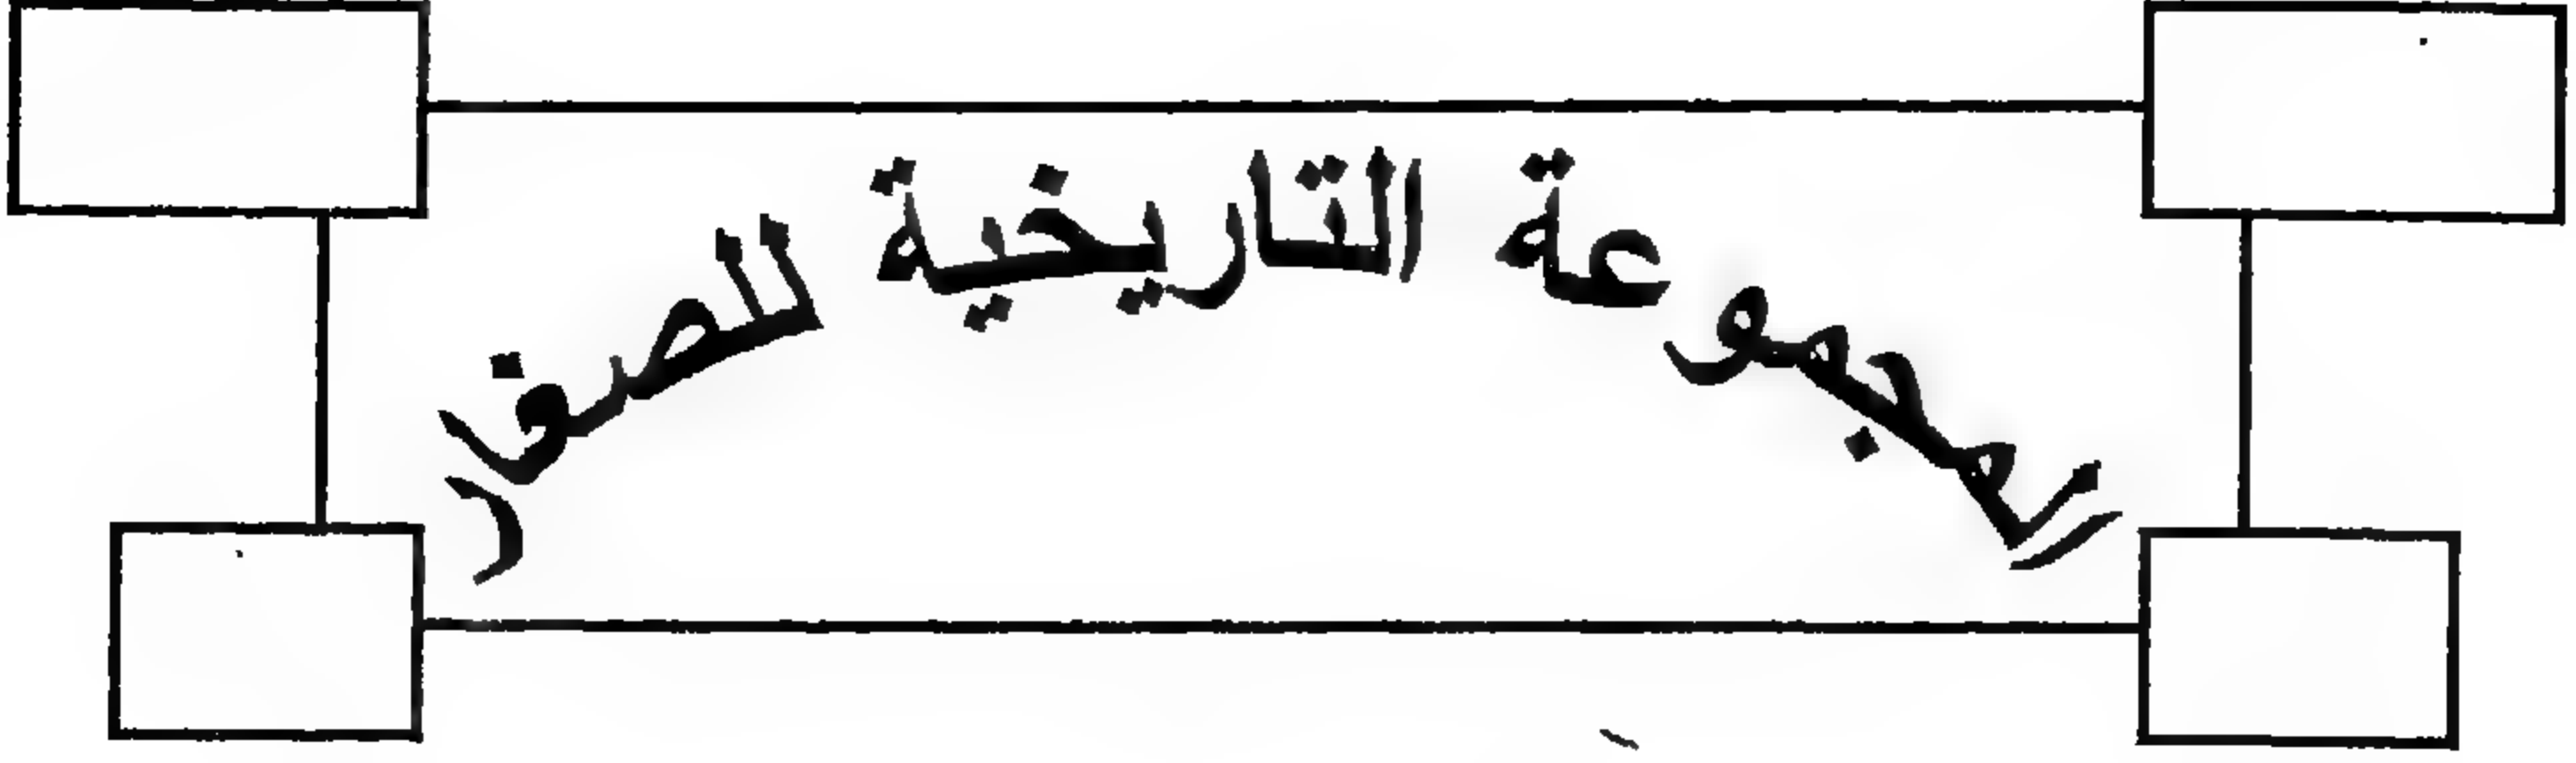 المجموعة التاريخية للصفار